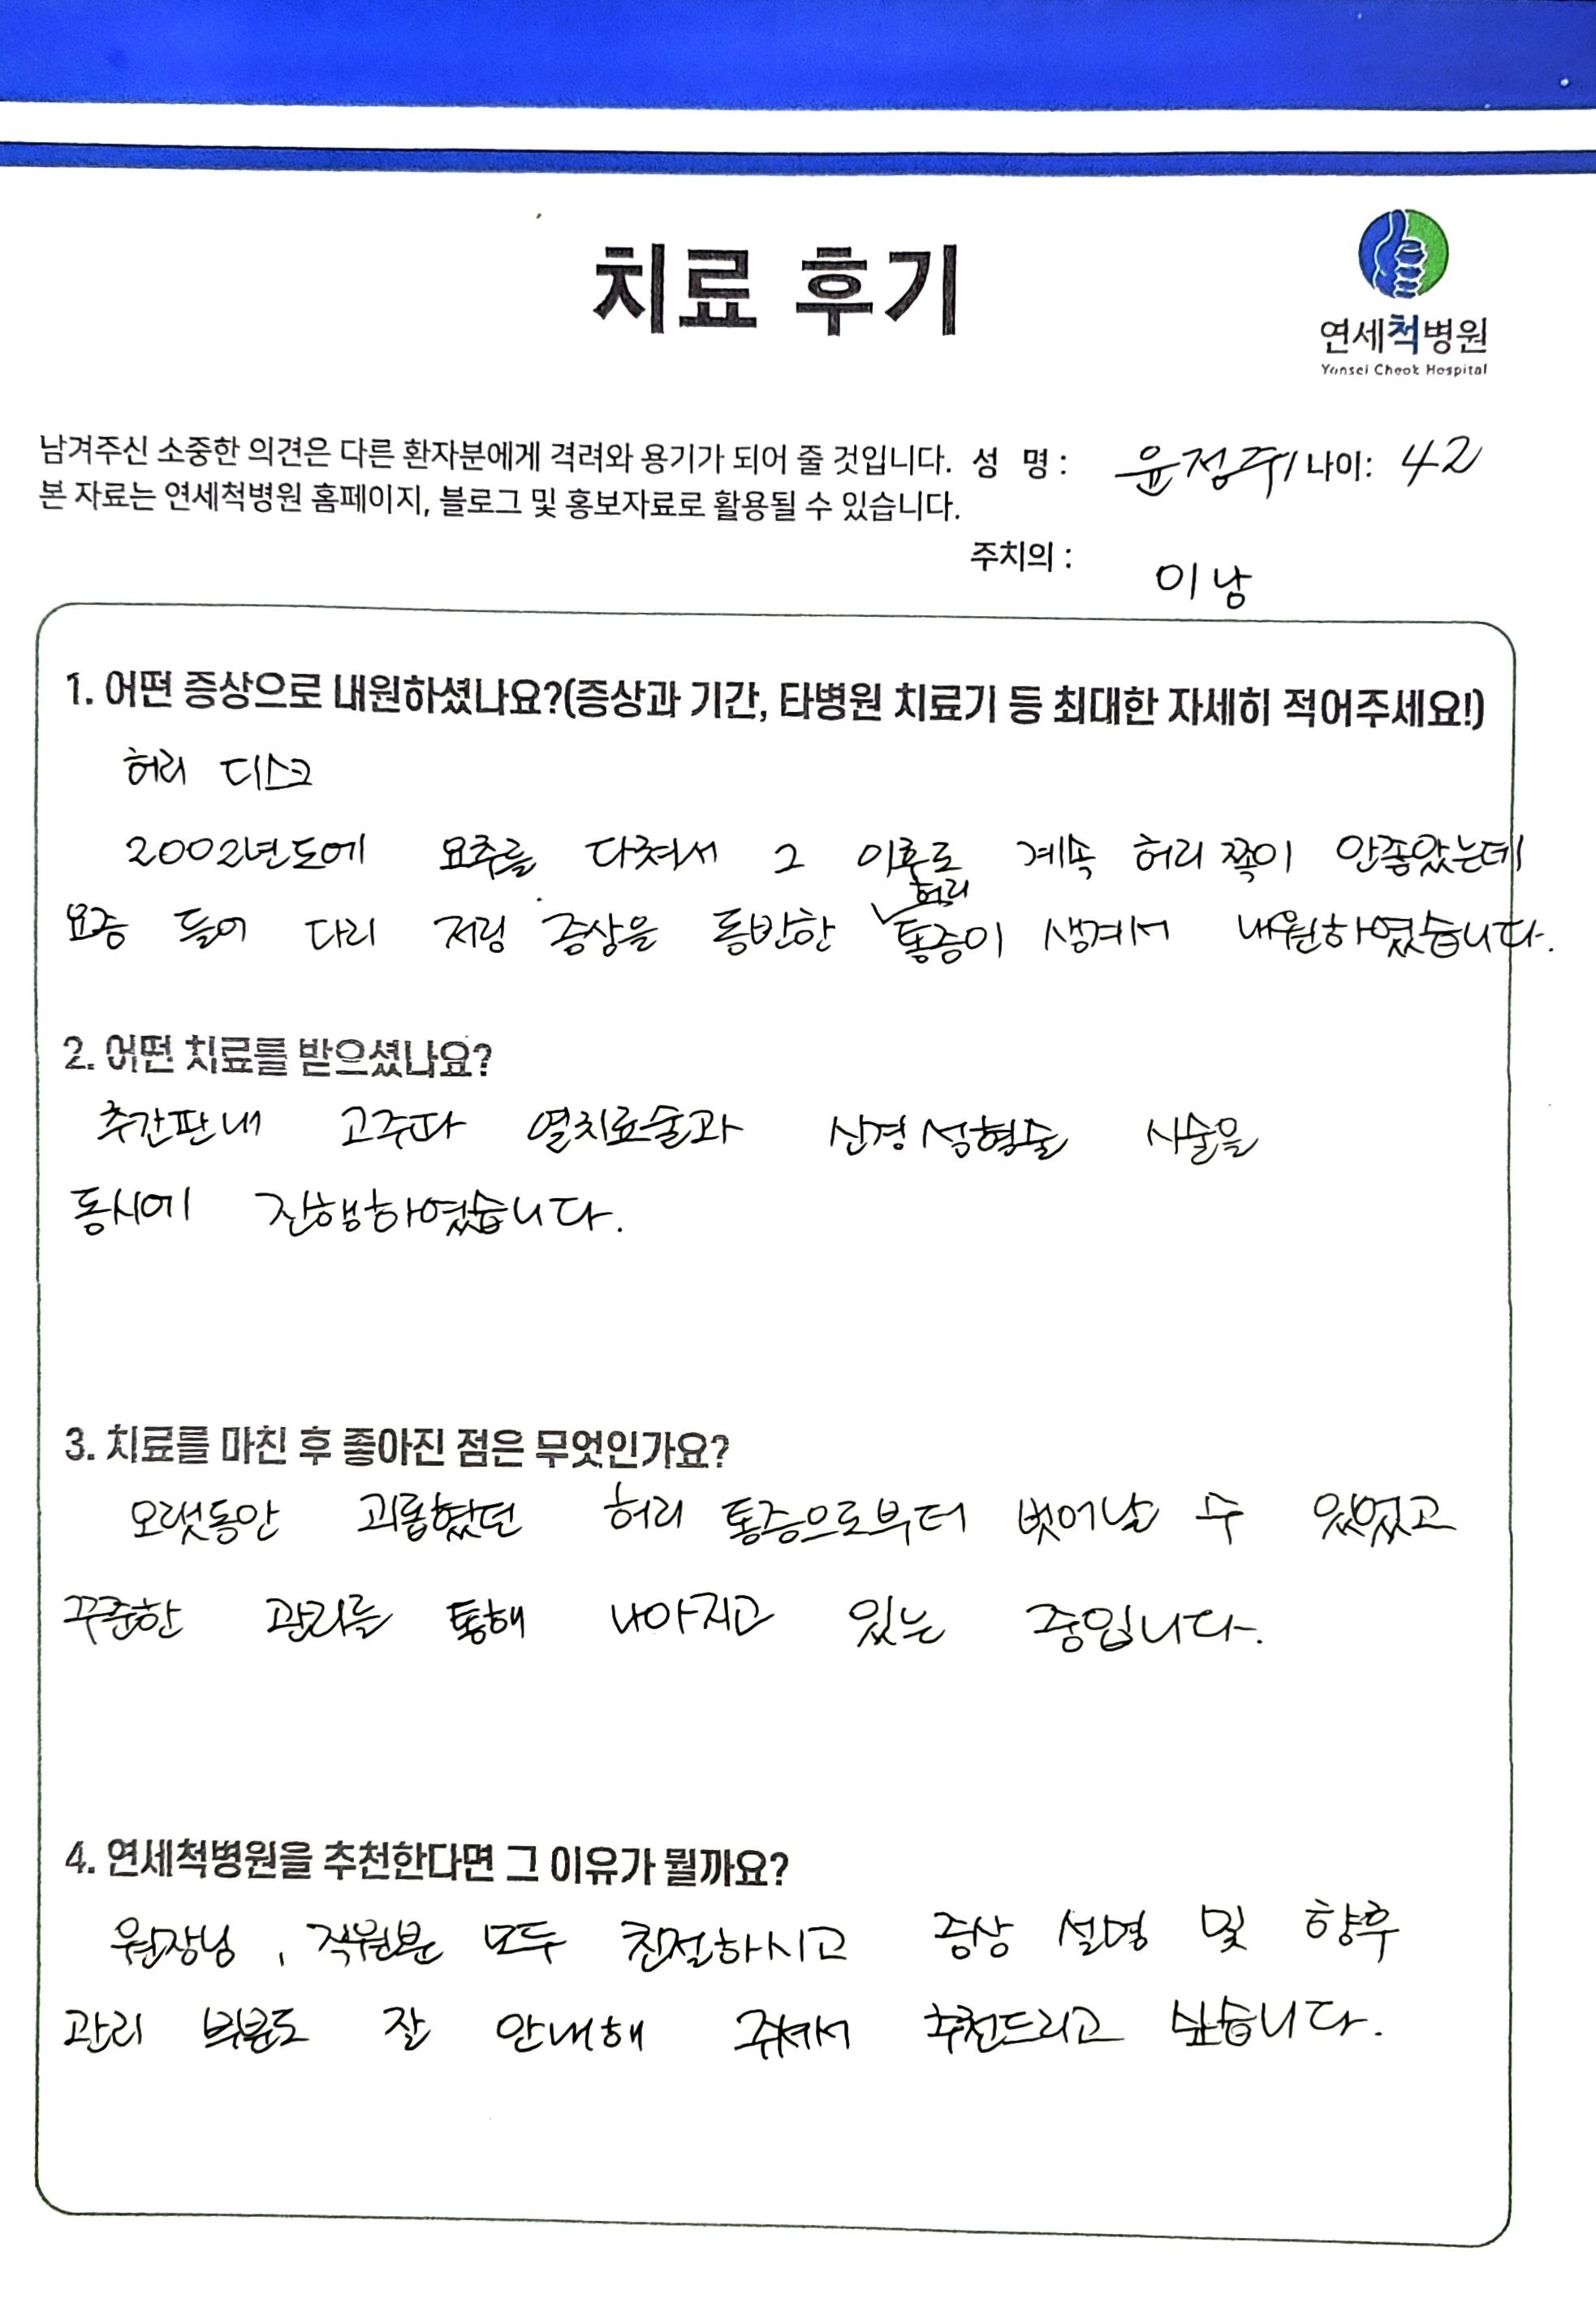 치료 후기
연세척병원
Yonsei Cheok Hospital
남겨주신 소중한 의견은 다른 환자분에게 격려와 용기가 되어 줄 것입니다. 성 명 : 윤정쥐 나이: 42
본 자료는 연세척병원 홈페이지, 블로그 및 홍보자료로 활용될 수 있습니다.
주치의 : 이남
1. 어떤 증상으로 내원하셨나요?(증상과 기간, 타병원 치료기 등 최대한 자세히 적어주세요!)
허리 디스크
2002년도에 요추를 다쳐서 그 이후로 계속 허리쪽이 안좋았는데
요즘 들어 다리 저림 증상을 동반한 허리 통증이 생겨서 내원하였습니다.
2. 어떤 치료를 받으셨나요?
추간판내 고주파 열치료술과 신경성형술 시술을
동시에 진행하였습니다.
3. 치료를 마친 후 좋아진 점은 무엇인가요?
오랫동안 괴롭혔던 허리 통증으로부터 벗어날 수 있었고
꾸준한 관리를 통해 나아지고 있는 중입니다.
4. 연세척병원을 추천한다면 그 이유가 뭘까요?
원장님, 직원분 모두 친절하시고 증상 설명 및 향후
관리 부분도 잘 안내해 주셔서 추천드리고 싶습니다.